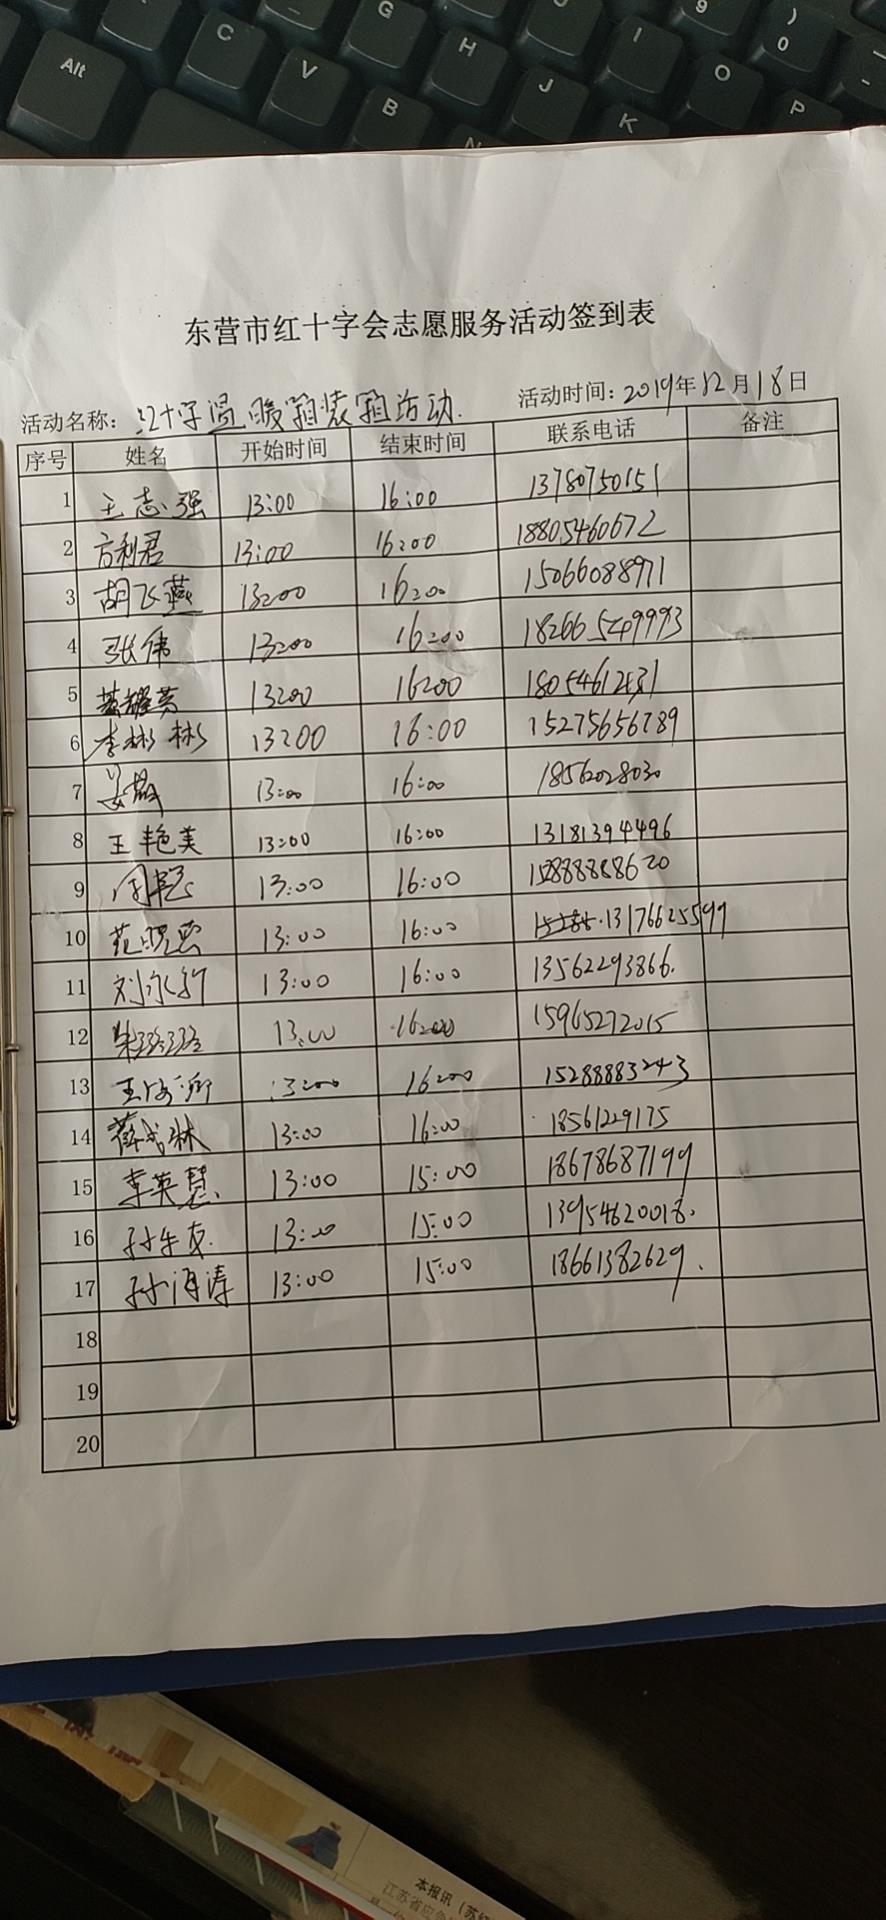 Alt C V G B H J I K O P 9 ) 0
东营市红十字会志愿服务活动签到表
活动名称: 红十字温暖箱装箱活动. 活动时间: 2019年12月18日
序号 姓名 开始时间 结束时间 联系电话 备注
1 王志强 13:00 16:00 13780750151
2 方利君 13:00 16:00 18805460672
3 胡飞燕 13:00 16:00 15066088971
4 张伟 13:00 16:00 18266549993
5 13:00 16:00
6 李彬彬 13:00 16:00 15275656789
7 姜敏 13:00 16:00 18562028030
8 王艳美 13:00 16:00 13181394496
9 13:00 16:00 15288888620
10 范晓 13:00 16:00 13176625599
11 刘永行 13:00 16:00 13562293866.
12 朱 13:00 16:00 15965272015
13 王 13:00 16:00 15288883243
14 薛 林 13:00 16:00 18561229175
15 李英慧 13:00 15:00 18678687199
16 孙 友 13:00 15:00 13954620018.
17 孙海涛 13:00 15:00 18661382629.
18
19
20
本报讯
江苏省应急